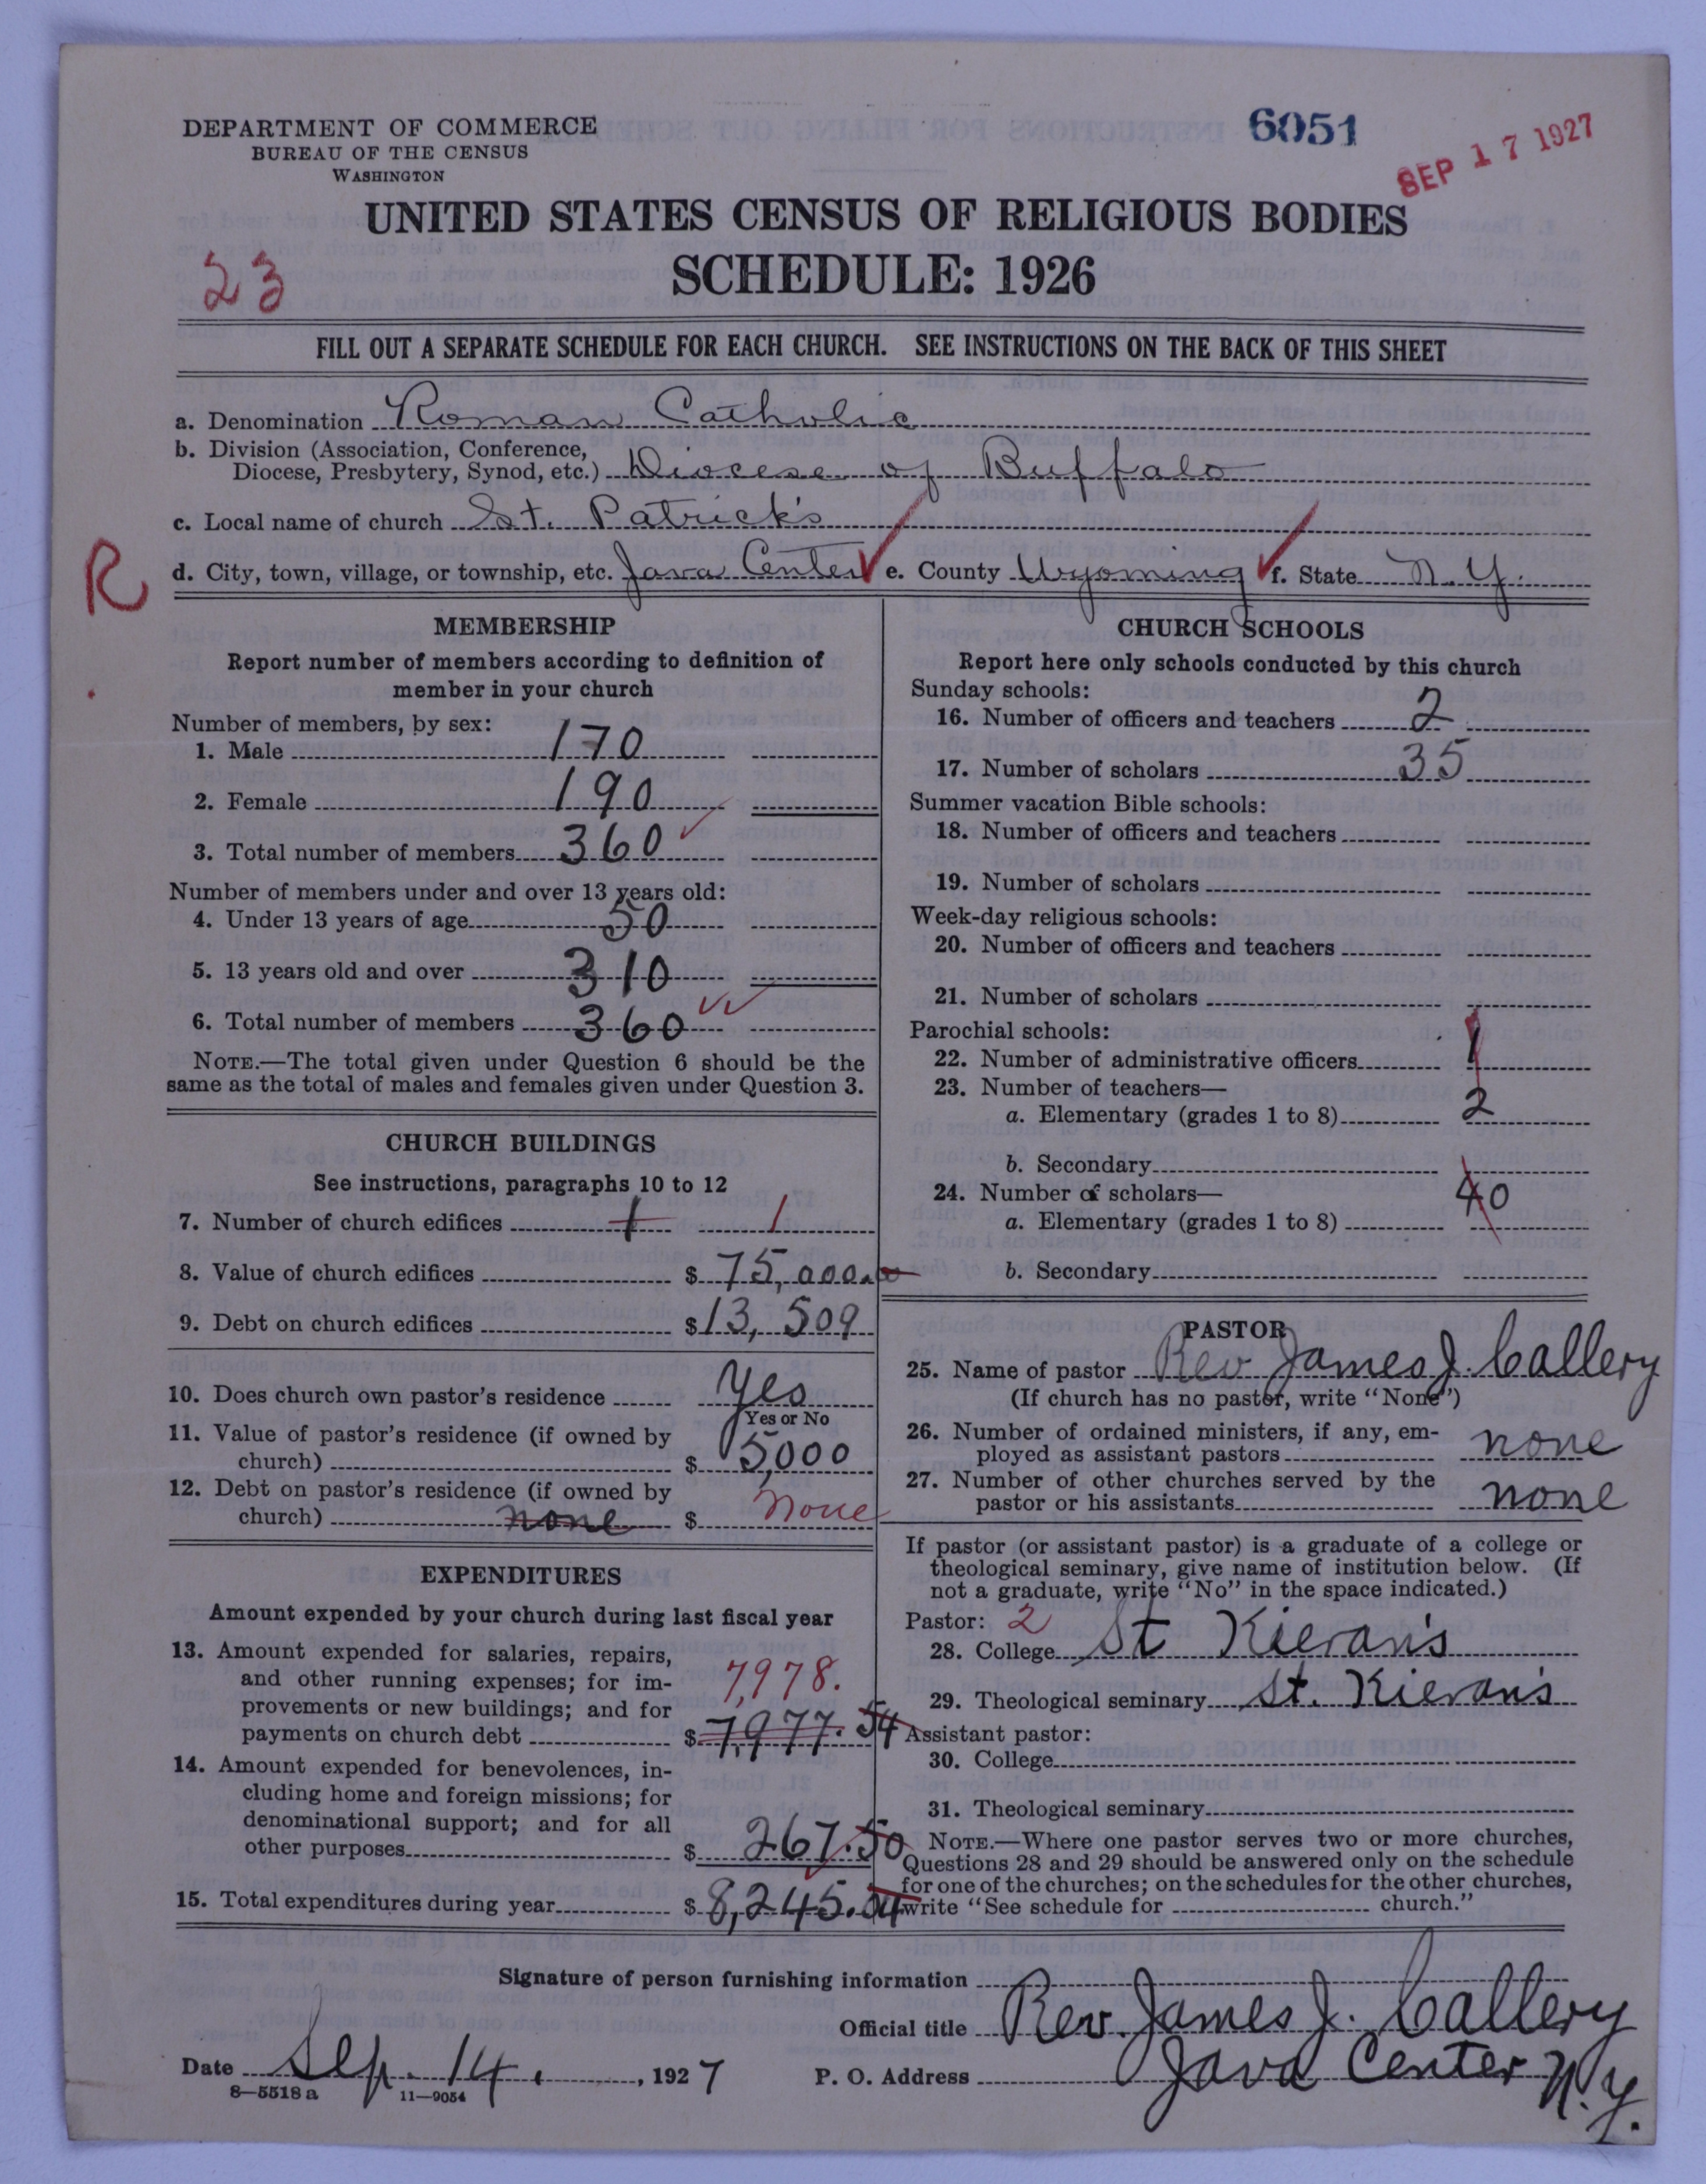 DEPARTMENT OF COMMERCE
BUREAU OF THE CENSUS
WASHINGTON
6051
SEP 17 1927
UNITED STATES CENSUS OF RELIGIOUS BODIES
SCHEDULE: 1926
23
FILL OUT A SEPARATE SCHEDULE FOR EACH CHURCH. SEE INSTRUCTIONS ON THE BACK OF THIS SHEET
a. Denomination Roman Catholic
b. Division (Association, Conference,
Diocese, Presbytery, Synod, etc.) Diocese of Buffalo
c. Local name of church St. Patrick's
R
d. City, town, village, or township, etc. Java Center e. County Wyoming f. State N.Y.
MEMBERSHIP
Report number of members according to definition of
member in your church
Number of members, by sex:
1. Male 170
2. Female 190
3. Total number of members 360
Number of members under and over 13 years old:
4. Under 13 years of age 50
5. 13 years old and over 310
6. Total number of members 360
NOTE.—The total given under Question 6 should be the
same as the total of males and females given under Question 3.
CHURCH BUILDINGS
See instructions, paragraphs 10 to 12
7. Number of church edifices 1 1
8. Value of church edifices $ 75,000.00
9. Debt on church edifices $ 13,509
10. Does church own pastor's residence Yes
Yes or No
11. Value of pastor's residence (if owned by
church) $ 5,000
12. Debt on pastor's residence (if owned by
church) none $ None
EXPENDITURES
Amount expended by your church during last fiscal year
13. Amount expended for salaries, repairs,
and other running expenses; for im-
7,978.
provements or new buildings; and for
payments on church debt $ 7,977.54
14. Amount expended for benevolences, in-
cluding home and foreign missions; for
denominational support; and for all
other purposes $ 267.50
15. Total expenditures during year $ 8,245.04
CHURCH SCHOOLS
Report here only schools conducted by this church
Sunday schools:
16. Number of officers and teachers 2
17. Number of scholars 35
Summer vacation Bible schools:
18. Number of officers and teachers
19. Number of scholars
Week-day religious schools:
20. Number of officers and teachers
21. Number of scholars
Parochial schools:
22. Number of administrative officers 1
23. Number of teachers—
a. Elementary (grades 1 to 8) 2
b. Secondary
24. Number of scholars—
a. Elementary (grades 1 to 8) 40
b. Secondary
PASTOR
25. Name of pastor Rev James J. Callery
(If church has no pastor, write "None")
26. Number of ordained ministers, if any, em-
ployed as assistant pastors none
27. Number of other churches served by the
pastor or his assistants none
If pastor (or assistant pastor) is a graduate of a college or
theological seminary, give name of institution below. (If
not a graduate, write "No" in the space indicated.)
Pastor: 2
28. College St Kieran's
29. Theological seminary St. Kieran's
Assistant pastor:
30. College
31. Theological seminary
NOTE.—Where one pastor serves two or more churches,
Questions 28 and 29 should be answered only on the schedule
for one of the churches; on the schedules for the other churches,
write "See schedule for church."
Signature of person furnishing information
Official title Rev. James J. Callery
Date Sep. 14, 1927 P. O. Address Java Center N.Y.
8—5518 a 11—9054